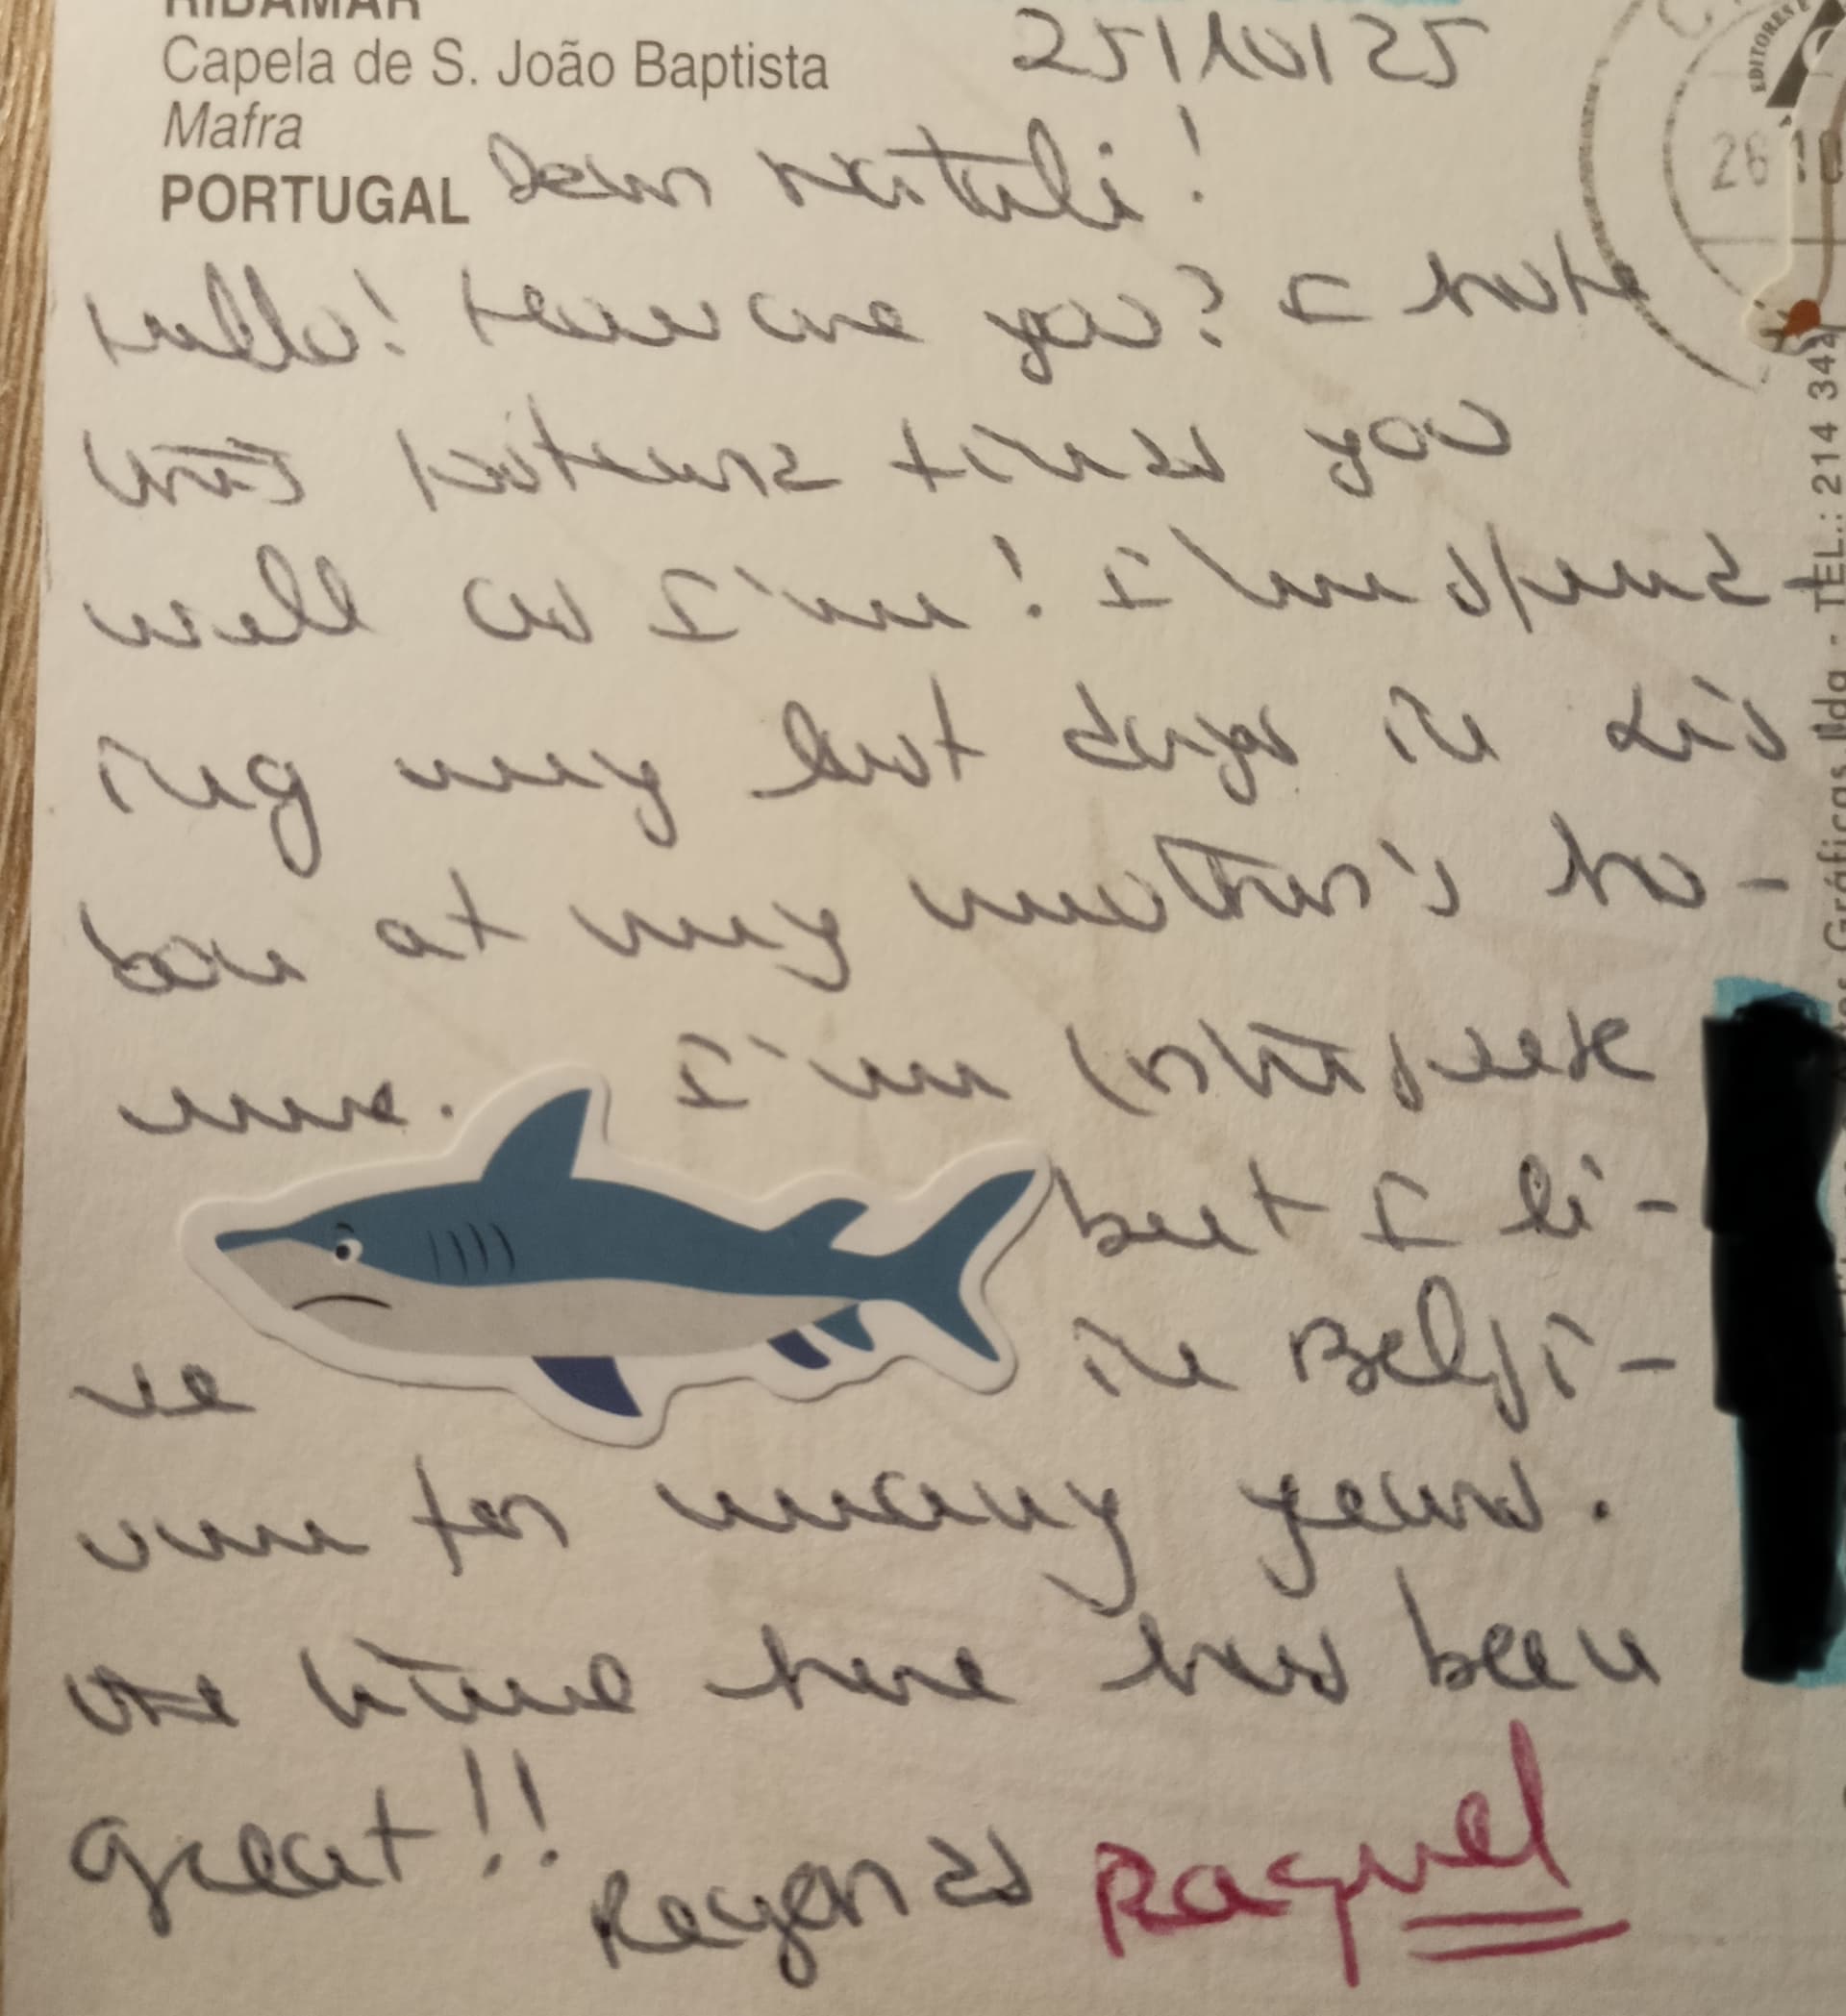 RIBAMAR
Capela de S. João Baptista
Mafra
PORTUGAL
25/10/25
Dear Natali!
Hello! How are you? I hope
this postcard finds you
well as I'm! I'm spend-
ing my last days in Lis
bon at my mother's ho-
me. I'm Portuguese
but I li-
ve in Belgi-
um for many years.
The time here has been
great!!
Regards Raquel
EDITORES E
26 10
Gráficas lda - TEL.: 214 344